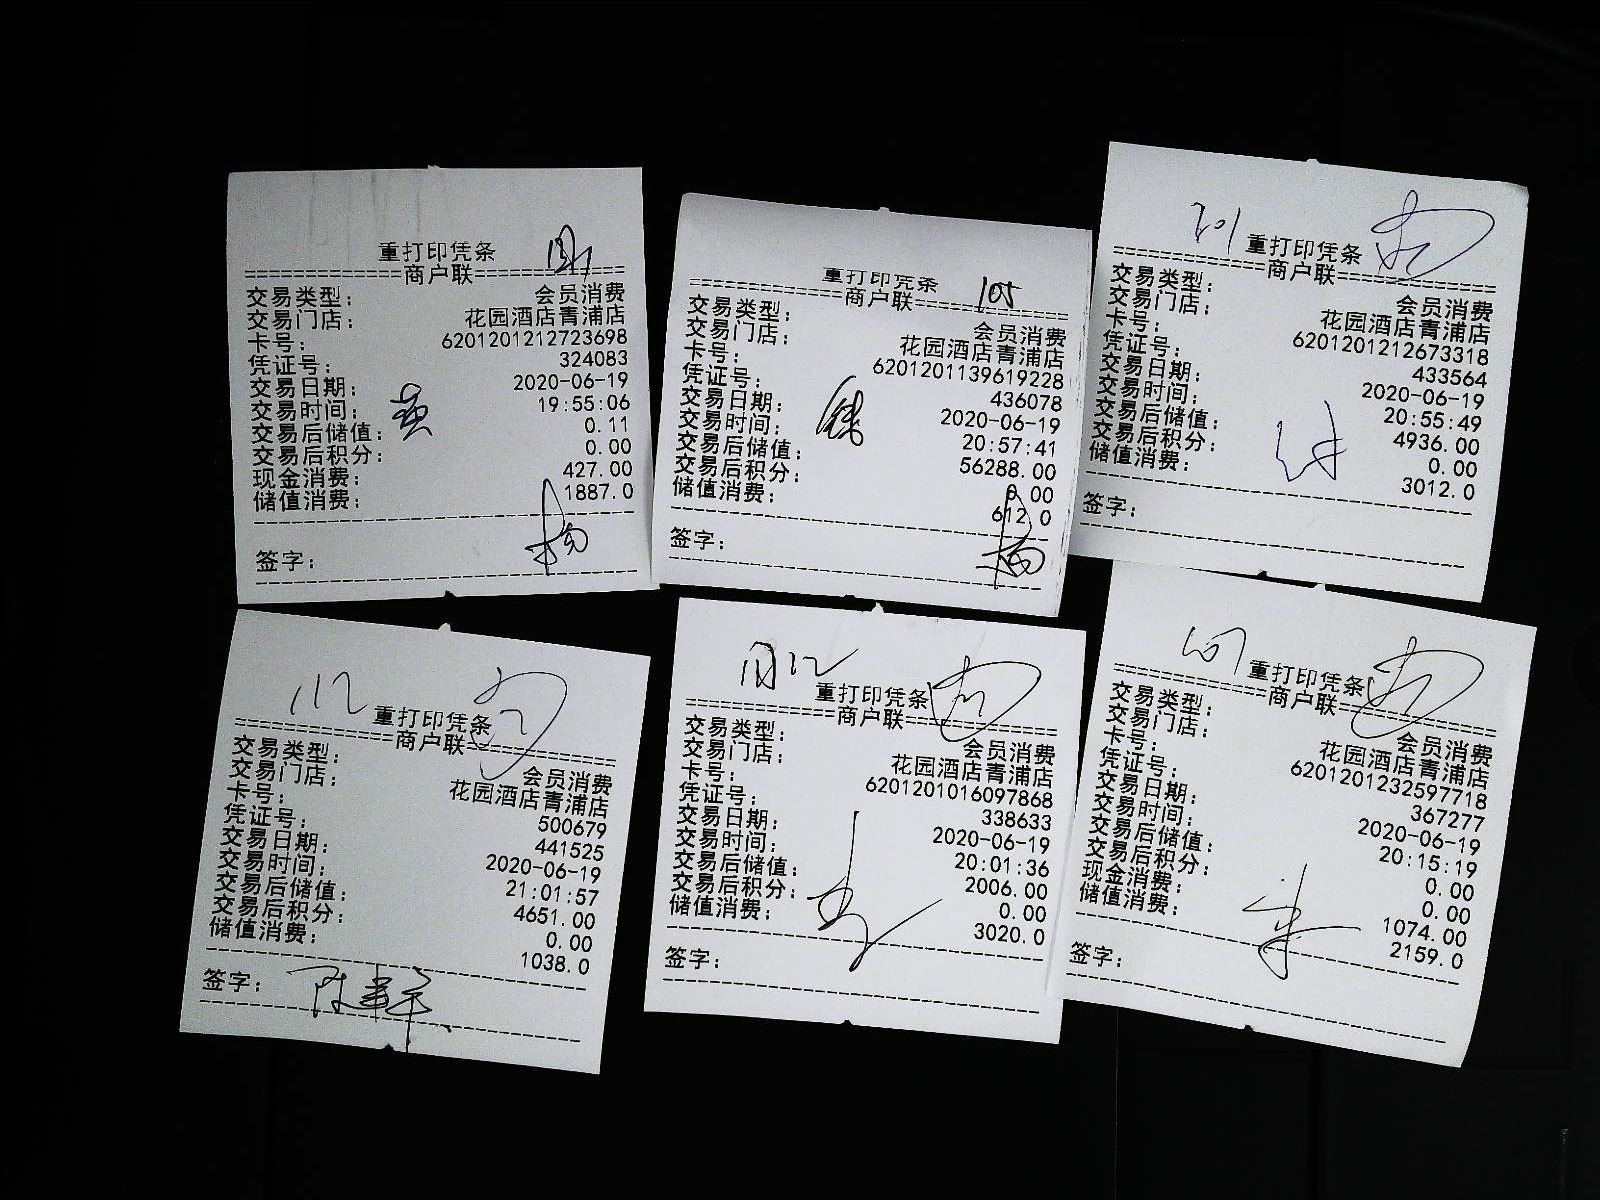 重打印凭条
==============商户联==============
交易类型： 会员消费
交易门店： 花园酒店青浦店
卡号： 6201201212723698
凭证号： 324083
交易日期： 2020-06-19
交易时间： 19:55:06
交易后储值： 0.11
交易后积分： 0.00
现金消费： 427.00
储值消费： 1887.0
签字：
重打印凭条
105
==============商户联==============
交易类型： 会员消费
交易门店： 花园酒店青浦店
卡号： 6201201139619228
凭证号： 436078
交易日期： 2020-06-19
交易时间： 20:57:41
交易后储值： 56288.00
交易后积分： 0.00
储值消费： 612.0
签字：
201
重打印凭条
==============商户联==============
交易类型： 会员消费
交易门店： 花园酒店青浦店
卡号： 6201201212673318
凭证号： 433564
交易日期： 2020-06-19
交易时间： 20:55:49
交易后储值： 4936.00
交易后积分： 0.00
储值消费： 3012.0
签字：
112
重打印凭条
==============商户联==============
交易类型： 会员消费
交易门店： 花园酒店青浦店
卡号： 500679
凭证号： 441525
交易日期： 2020-06-19
交易时间： 21:01:57
交易后储值： 4651.00
交易后积分： 0.00
储值消费： 1038.0
签字：
重打印凭条
==============商户联==============
交易类型： 会员消费
交易门店： 花园酒店青浦店
卡号： 6201201016097868
凭证号： 338633
交易日期： 2020-06-19
交易时间： 20:01:36
交易后储值： 2006.00
交易后积分： 0.00
储值消费： 3020.0
签字：
107
重打印凭条
==============商户联==============
交易类型： 会员消费
交易门店： 花园酒店青浦店
卡号： 6201201232597718
凭证号： 367277
交易日期： 2020-06-19
交易时间： 20:15:19
交易后储值： 0.00
交易后积分： 0.00
现金消费： 1074.00
储值消费： 2159.0
签字：